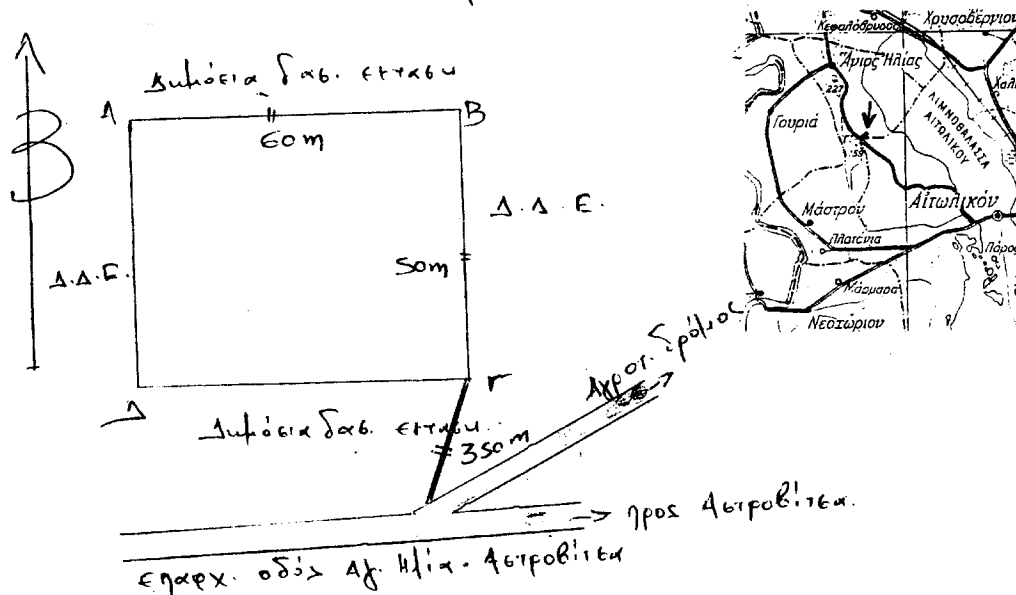 Δημόσια δασ. έκταση
Α
Β
60m
Β
Δ.Δ.Ε.
50m
Δ.Δ.Ε.
Δ
Γ
Δημόσια δασ. έκταση
350m
Αγροτ. δρόμος
προς Αστροβίτσα.
επαρχ. οδός Αγ. Ηλία - Αστροβίτσα
Κεφαλόβρυσσο
Χρυσοβέργιον
Άγιος Ηλίας
227
Χαλι
Γουριά
ΛΙΜΝΟΘΑΛΑΣΣΑ
ΑΙΤΩΛΙΚΟΥ
59
Αἰτωλικόν
Μάστρον
Πλατενια
Πόρος
Μάρμαρα
Νεοχώριον